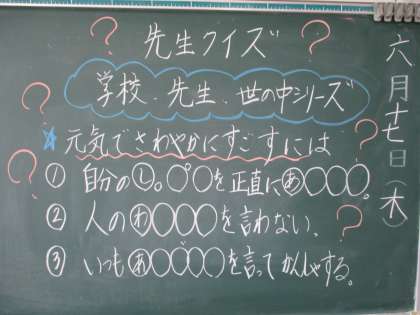 先生クイズ
学校、先生、世の中シリーズ
★元気でさわやかにすごすには
① 自分のⓛ。○゜○を正直にあ○○○。
② 人のわ○○○を言わない、
③ いつもあ○○゛○○を言ってかんしゃする。
六月十七日(木)